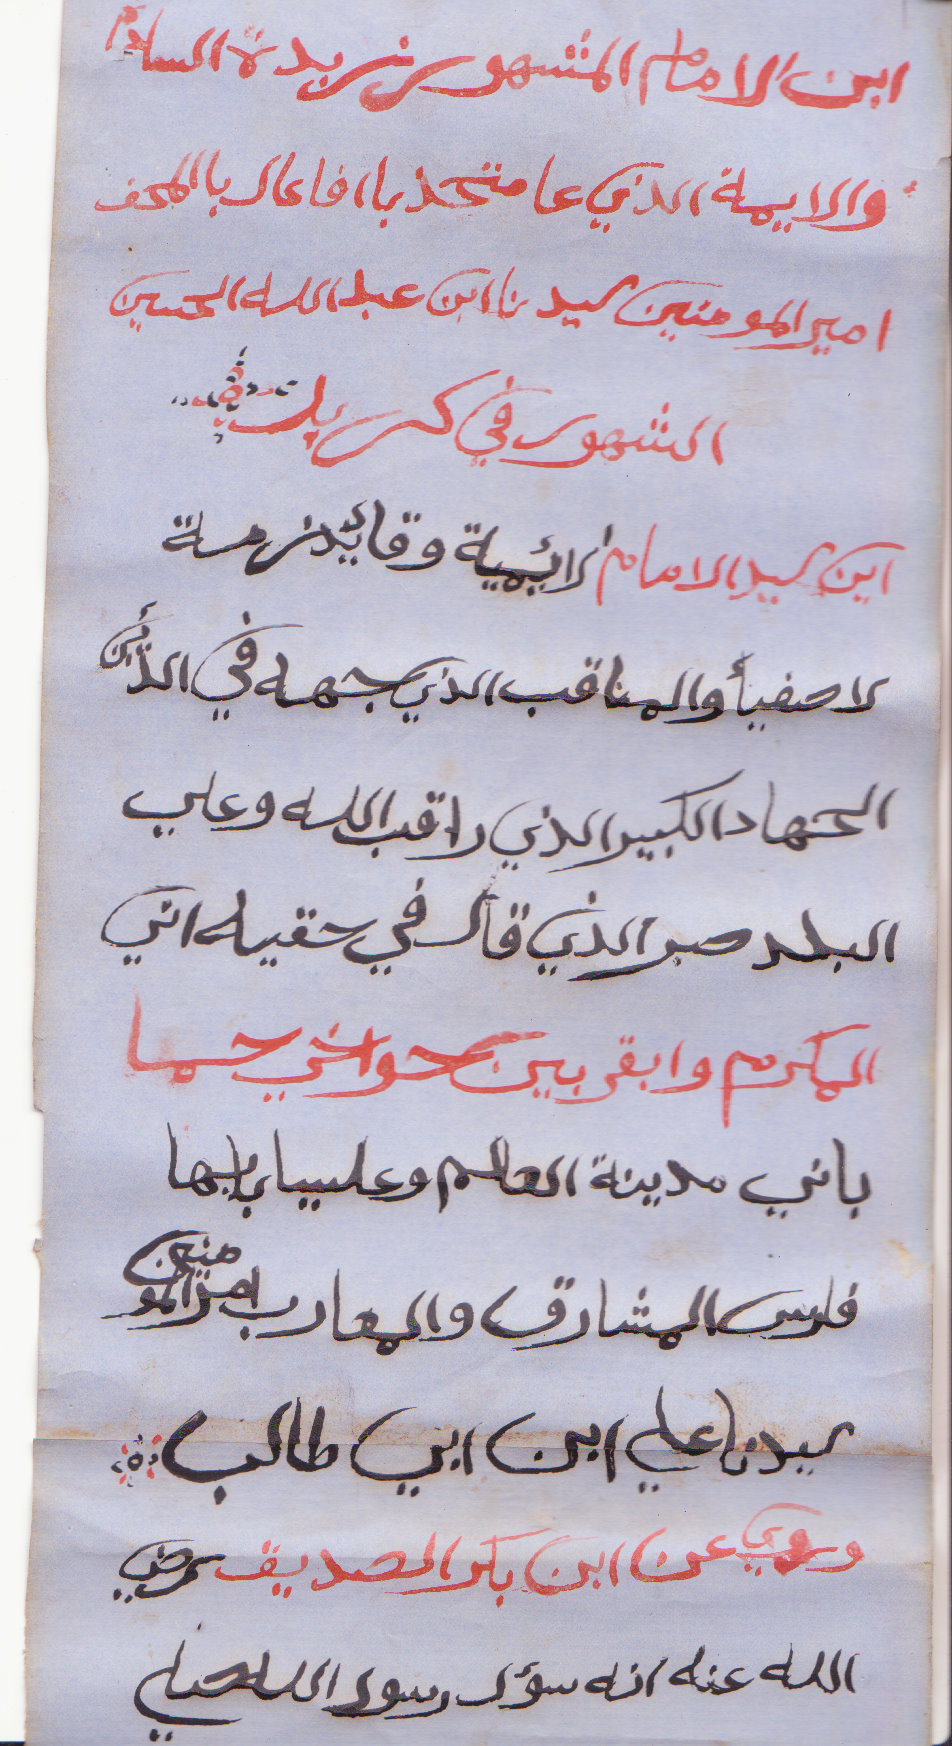 ابن الامام المشهور زبدة السادم
والايمة الذي عا متحذ باافاعال بالمحف
امير المومنين سيدنا ابن عبد الله الحسين
الشهور في كربل
ابن سيد الامام الائمية وقائد زمرسة
لاصفيأ والمناقب الذي جهه في الدأين
الحهاد الكبير الذي راقب الله وعلي
البلد صبر الذي قال في حقيه اني
المكرم وابقربين حواخي حسا
باني مدينة العالم وعليا بابها
فارس المشارق والمعارب امير المومنين
سيدنا علي ابن ابي طالب
وروي عن ابن بكر الصديق رضي
الله عنه انه سؤل رسول الله صلي